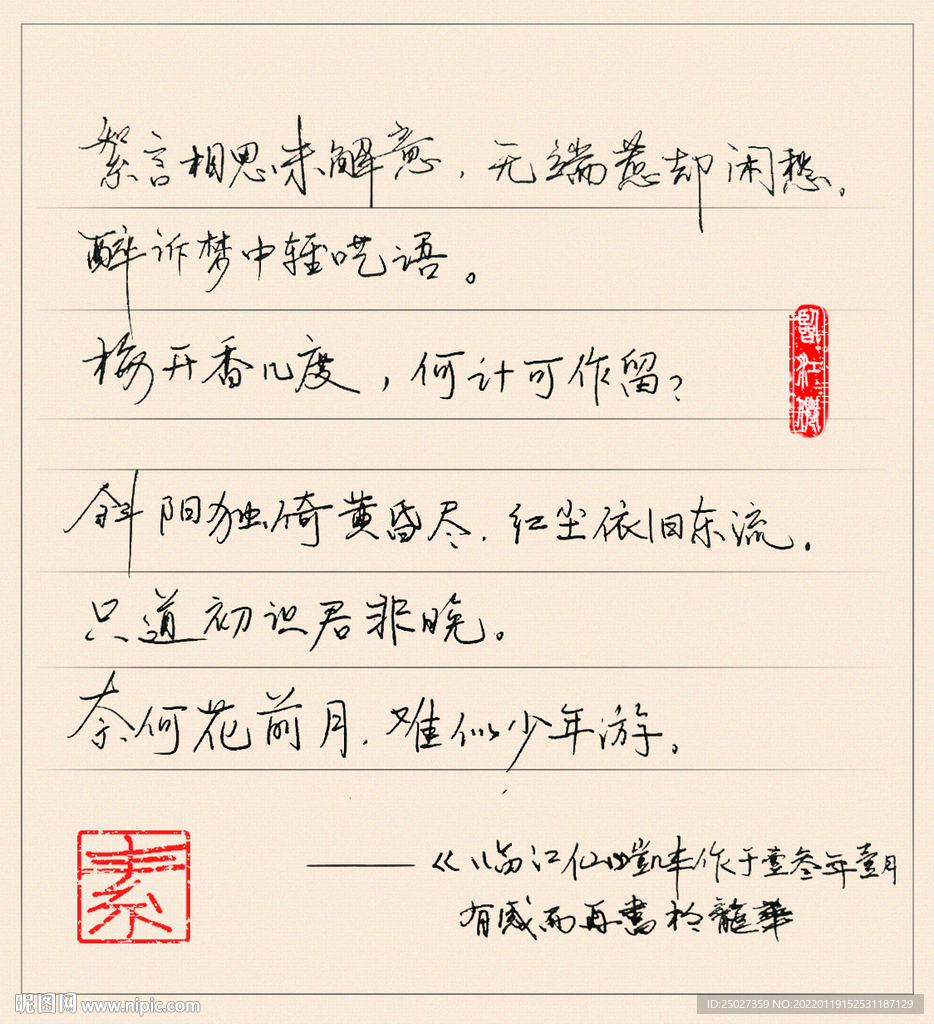 絮言相思未解意,无端惹却闲愁。
醉诉梦中轻呓语。
梅开香几度,何计可作留?
临江
斜阳独倚黄昏尽.红尘依旧东流。
只道初识君非晚。
奈何花前月.难似少年游。
素
——《临江仙 作于壹叁年壹月
有感而再书於龍華
昵图网 www.nipic.com
ID:25027359 NO:20220119152531187129